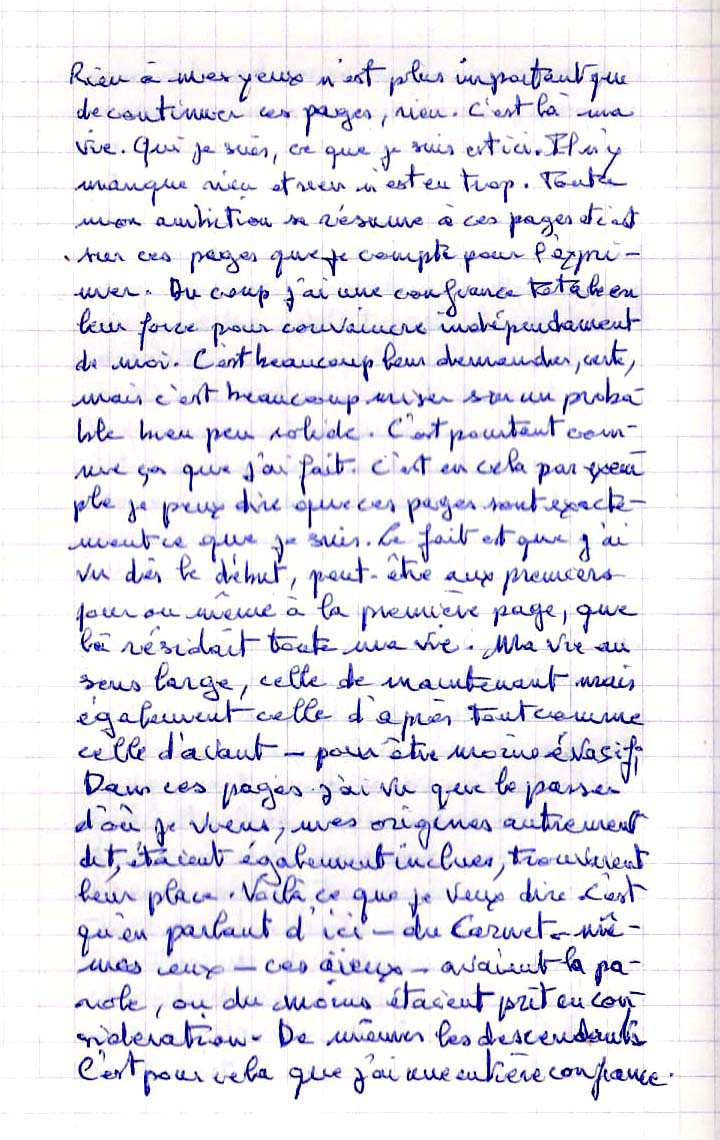 Rien à mes yeux n'est plus important que
de continuer ces pages, rien. C'est là ma
vie. Qui je suis, ce que je suis est ici. Il n'y
manque rien et rien n'est en trop. Toute
mon ambition se résume à ces pages et c'est
sur ces pages que je compte pour l'expri-
mer. Du coup j'ai une confiance totale en
leur force pour convaincre indépendament
de moi. C'est beaucoup leur demander, certe,
mais c'est beaucoup miser sur un proba-
ble bien peu solide. C'est pourtant com-
me ça que j'ai fait. C'est en cela par exem
ple je peux dire que ces pages sont exacte-
ment ce que je suis. Le fait est que j'ai
vu dès le début, peut-être aux premiers
jour ou même à la première page, que
là résidait toute ma vie. Ma vie au
sens large, celle de maintenant mais
également celle d'après tout comme
celle d'avant – pour être moins évasif,
Dans ces pages j'ai vu que le passer
d'où je viens, mes origines autrement
dit, étaient également inclues, trouvèrent
leur place. Voilà ce que je veux dire c'est
qu'en parlant d'ici – du Carnet – mê-
mes ceux – ces aïeux – avaient la pa-
role, ou du moins étaient prit en con-
sideration – De mêmes les descendants
C'est pour cela que j'ai une entière confiance.